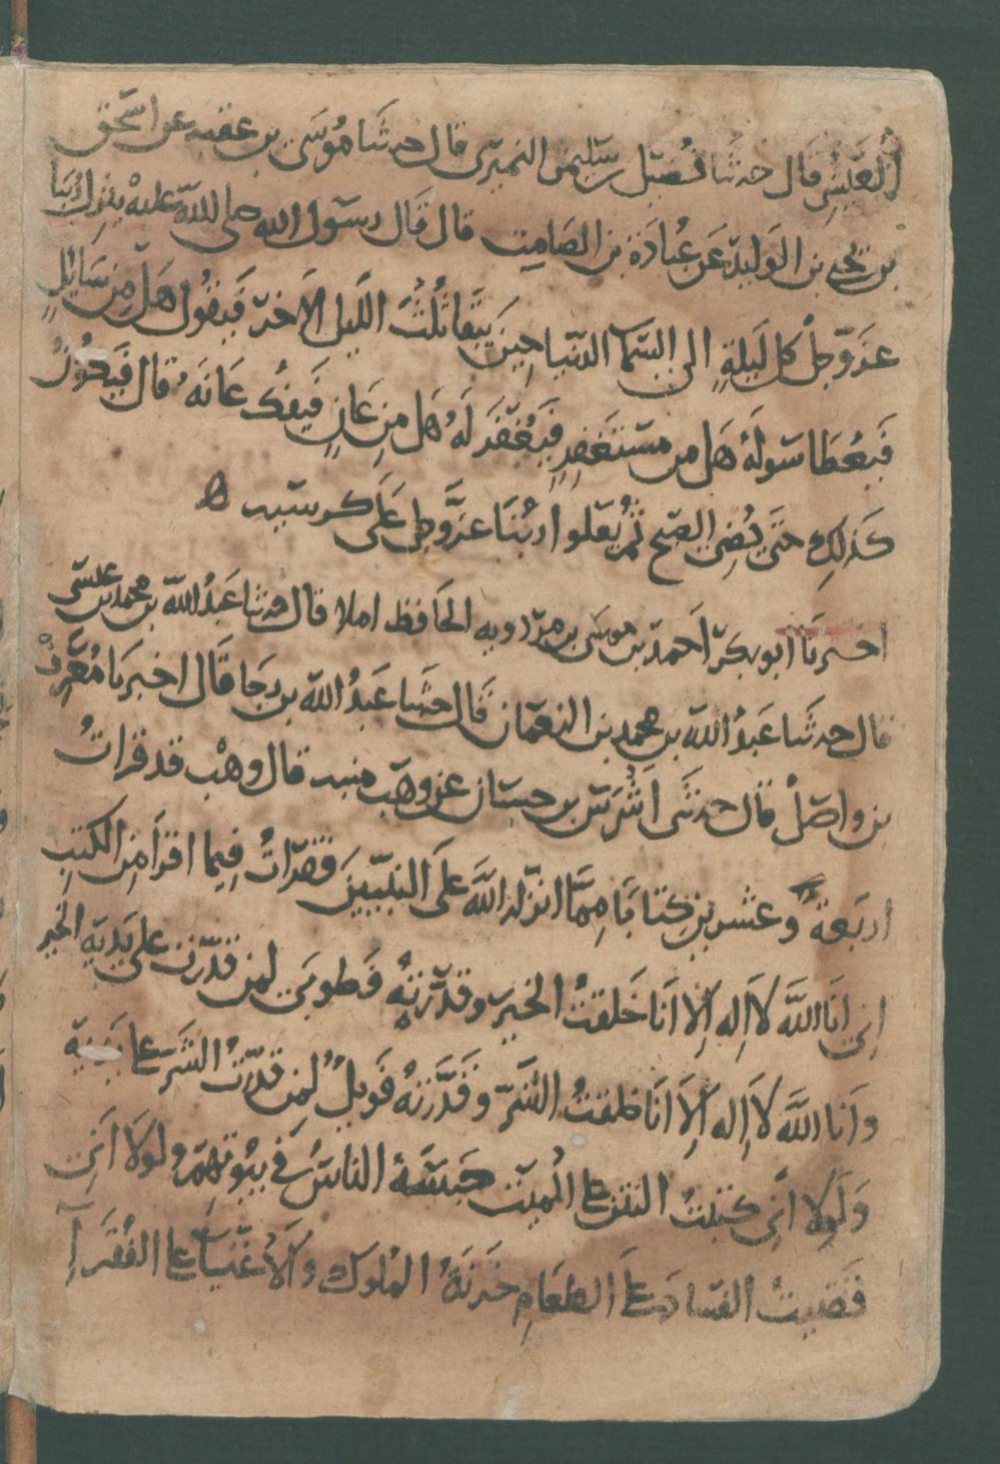 العَبْسِي قال حدثنا فُضَيل بن سليمن النميري قال حدثنا مُوسَى بن عقبه عن اسحق
بن يحيى بن الوليد عَن عُبَادَة بن الصَامِت قال قال رسول الله صلى الله عليه ينزل ربنا
عَزّ وَجلّ كل لَيلةٍ الى السّمآ الدنيا حِينَ يَبقَا ثُلثُ اللَيل الآخر فَيَقُول هَل مِن سَائلٍ
فَيُعْطَا سَولهُ هَل من مستَغفِرٍ فَيُغْفَر لَهُ هَل مِن عَانٍ فَيفك عَانَهُ قال فَيَكُونُ
كَذلِك حَتى يُضِي الصّبح ثُمّ يَعْلوا ربُنَا عَزَّ وجل عَلَى كرسيه ه
اخبرنا ابو بكر احمد بن موسى بن مردويه الحَافظ املا قال حدثنا عَبدُ الله بن محمد بن عيسى
قال حدثنا عَبدُ الله بن محمد بن النعمان قال حدثنا عَبدُ الله بن رجا قَال اخبرنا مُعَرفُ
بن واصل قال حدثني اشرس بن حسان عن وهب منبه قال وهْب قد قراتُ
اربعة وعشرين كِتابًا مِمّا انزله اللَّه عَلى النبيّينَ فقراتُ فِيما اقرأ مِن الكتبِ
اني انَا اللَّه لآ اِله اِلا انَا خَلقتُ الخَيرَ وقدّرتهُ فَطوبَى لمن قدّرت على يَدَيه الخير
وَانا اللَّه لآ اِله اِلاّ انَا خلقتُ الشّر وقَدَّرتهُ فَويلٌ لمن قدّرتُ الشَر على يديه
وَلَولا اني كتبتُ النتن على الميت حبسَهُ الناسُ في بيوتهم ولَولا انّى
قَضيتُ الفسَاد على الطعَامِ خَزنَهُ المُلوك وَالاغنيآ على الفُقرآ